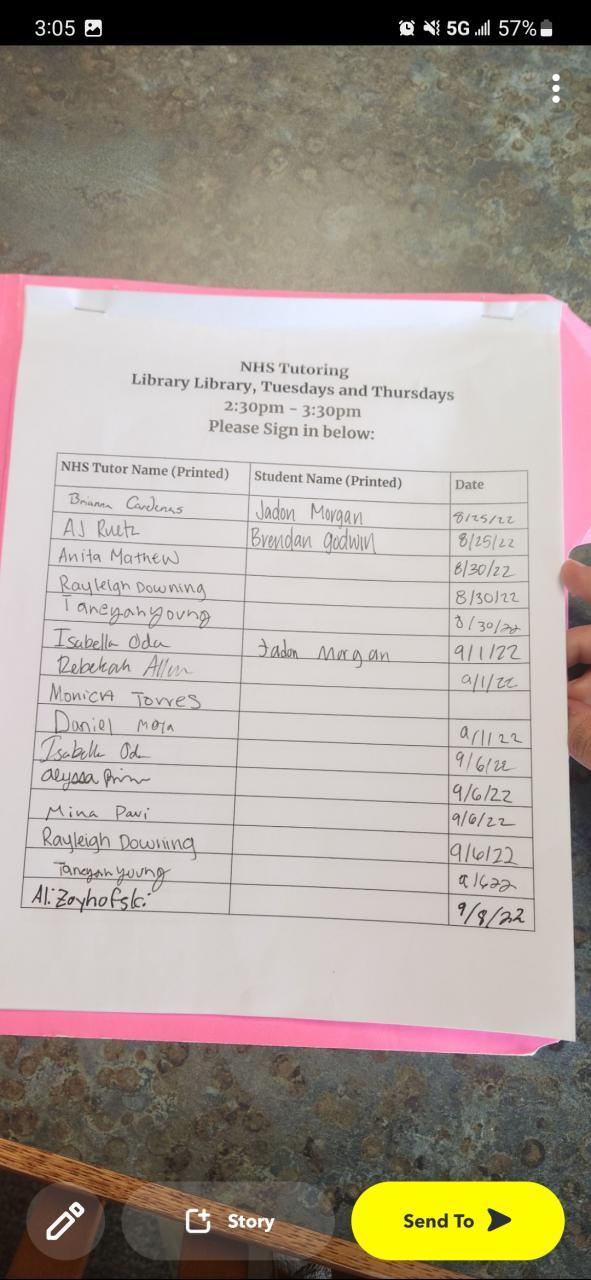 3:05 5G 57%
NHS Tutoring
Library Library, Tuesdays and Thursdays
2:30pm - 3:30pm
Please Sign in below:
NHS Tutor Name (Printed) Student Name (Printed) Date
Brianna Cardenas Jadon Morgan 8/25/22
AJ Ruetz Brendan godwin 8/25/22
Anita Mathew 8/30/22
Rayleigh Downing 8/30/22
Taneyah young 8/30/22
Isabella Oda Jadon Morgan 9/1/22
Rebekah Allen 9/1/22
Monica Torres
Daniel 9/1/22
Isabella Oda 9/6/22
alyssa 9/6/22
Mina 9/6/22
Rayleigh Downing 9/6/22
Taneyah young
Ali Zoyhofski 9/8/22
Story Send To